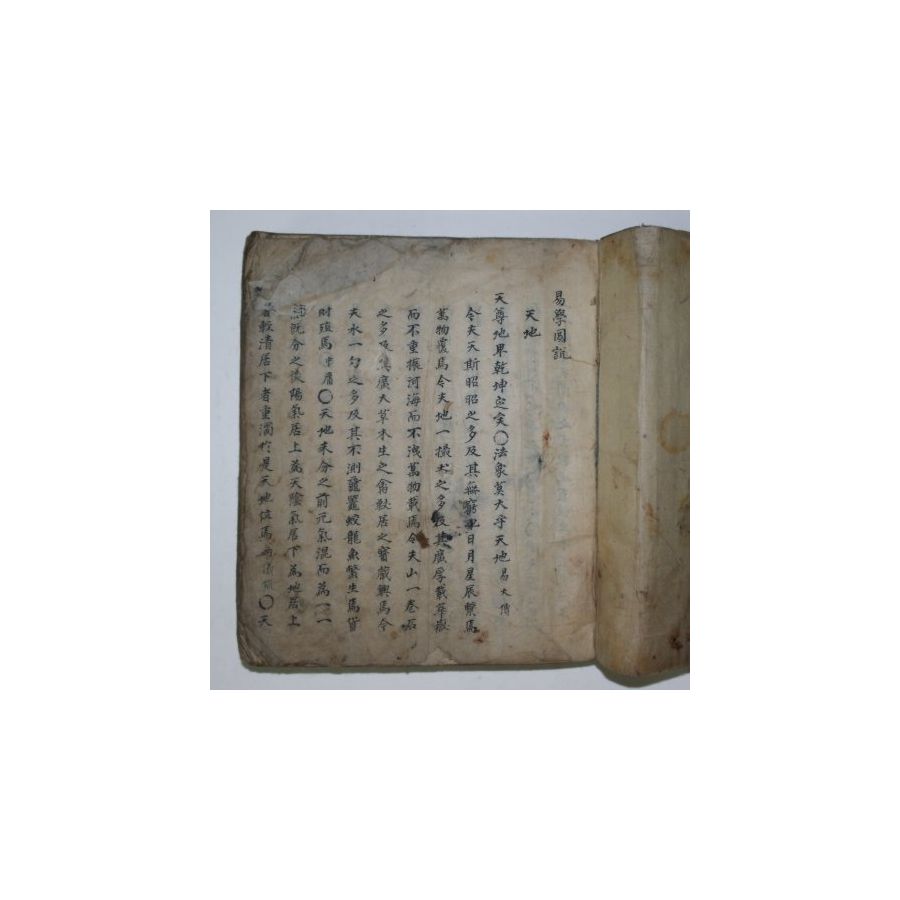 易學圖說
天地
天尊地卑乾坤定矣〇法象莫大乎天地易大傳
今夫天斯昭昭之多及其無窮也日月星辰繫焉
萬物覆焉今夫地一撮土之多及其廣厚載華嶽
而不重振河海而不洩萬物載焉今夫山一卷石
之多及其廣大草木生之禽獸居之寶藏興焉今
夫水一勺之多及其不測黿鼉蛟龍魚鱉生焉貨
財殖焉中庸〇天地未分之前元氣混而為一一
既分之後陽氣居上為天陰氣居下為地居上
者較清居下者重濁於是天地位焉兩儀〇天